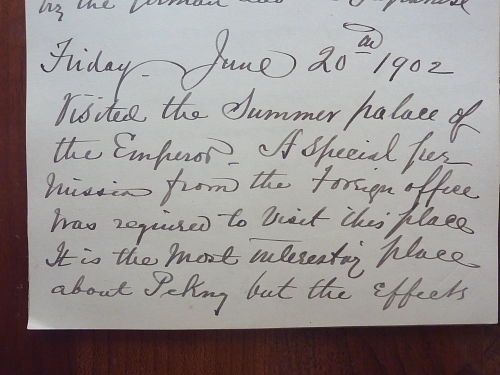 by the German and Japanese
Friday June 20th 1902
Visited the Summer palace of
the Emperor. A special per
mission from the Foreign office
was required to visit this place
It is the most interesting place
about Peking but the effects